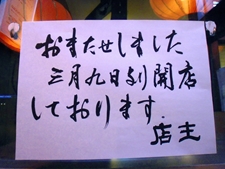 おまたせしました
三月九日より開店
しております.
店主